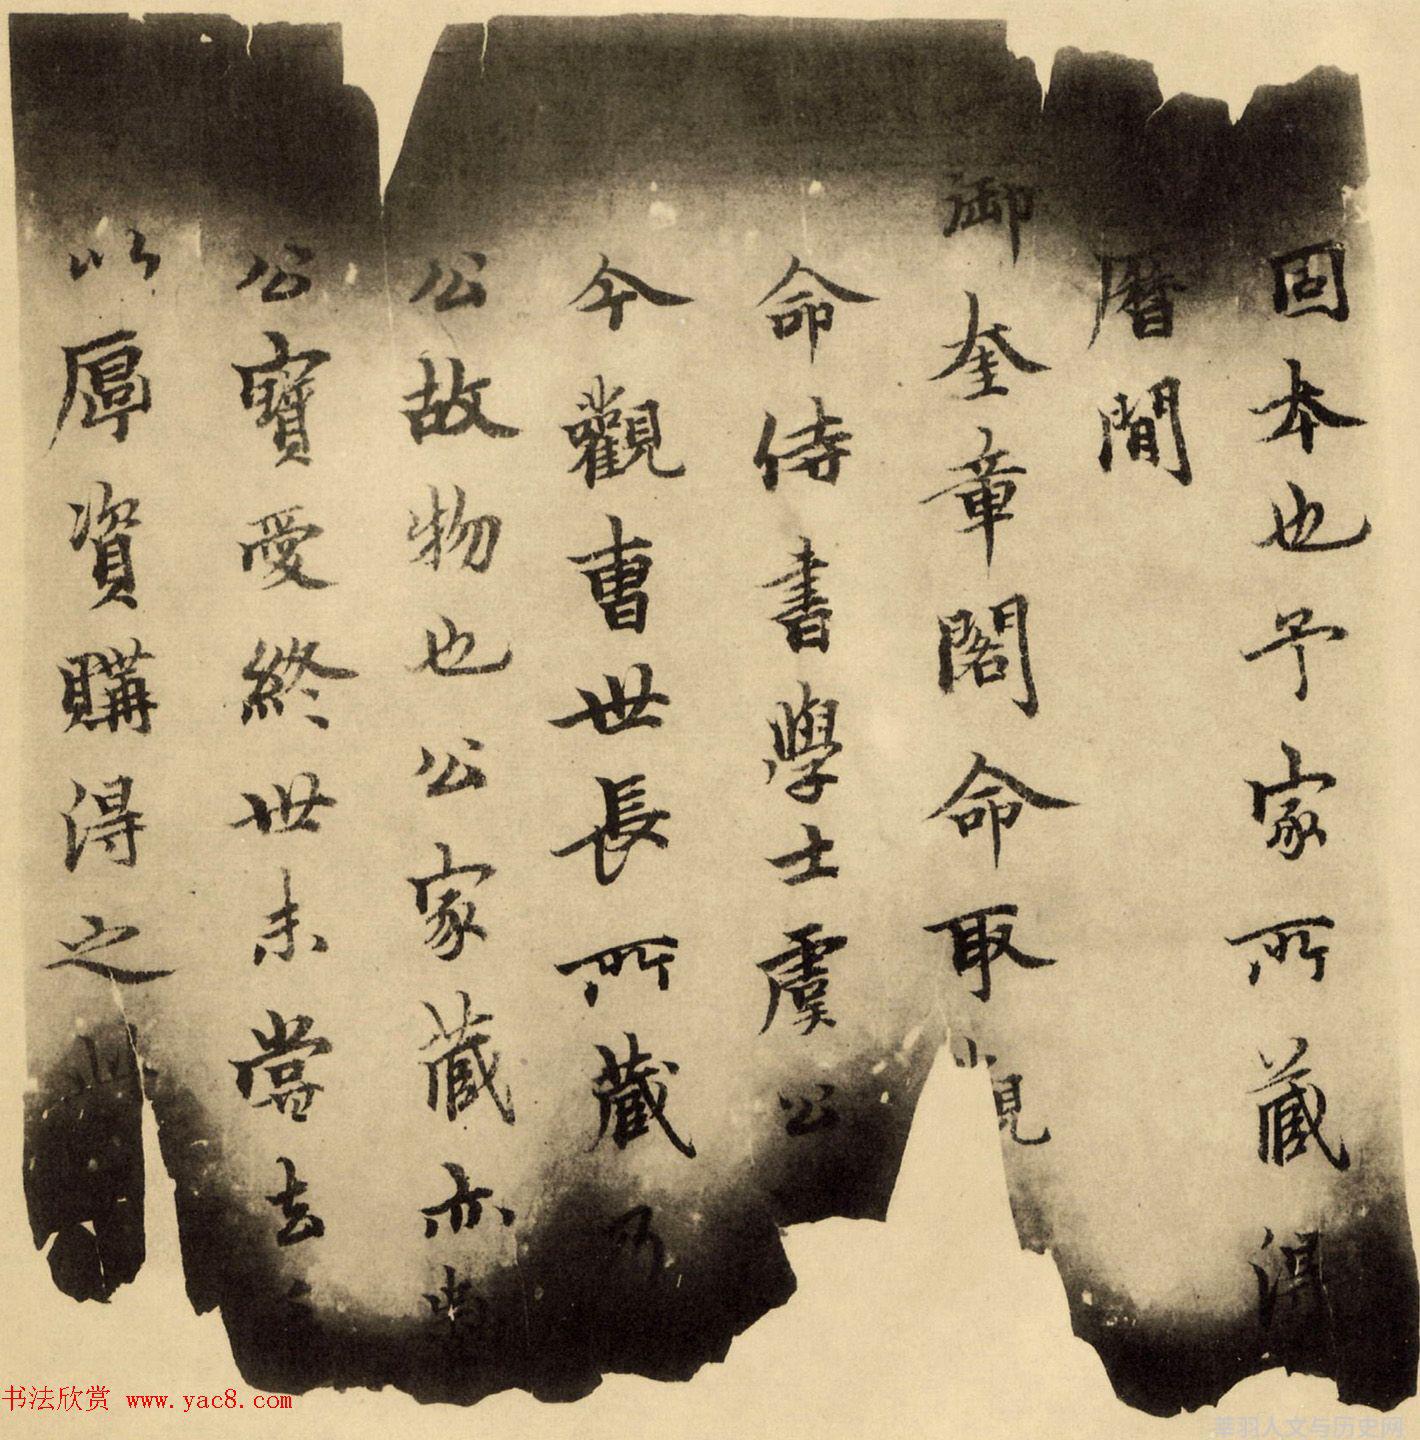 固本也予家所藏得
曆間
御奎章閣命取
命侍書學士虞公
今觀曹世長所藏乃
公故物也公家藏亦嘗
公寶愛終世未嘗去
以厚資購得之
书法欣赏 www.yac8.com
莘羽人文与历史网